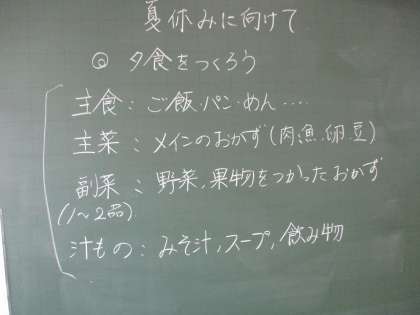 夏休みに向けて
◎ 夕食をつくろう
主食：ご飯・パン・めん‥‥
主菜：メインのおかず(肉,魚,卵,豆)
副菜：野菜,果物をつかったおかず
(1〜2品)
汁もの：みそ汁,スープ,飲み物